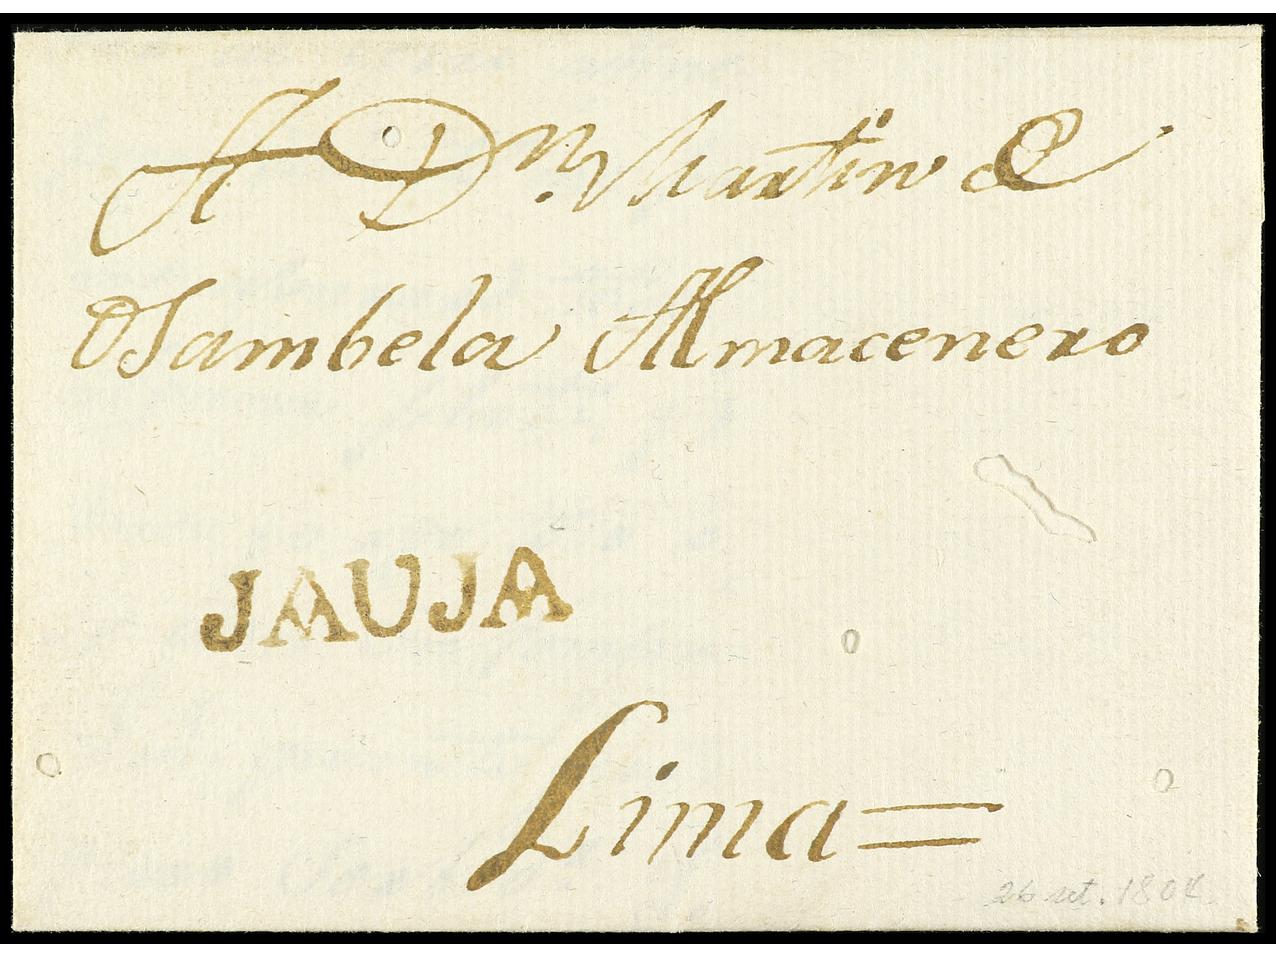 A Dn. Martin de
Osambela Almacenero
JAUJA
Lima=
26 set. 1804